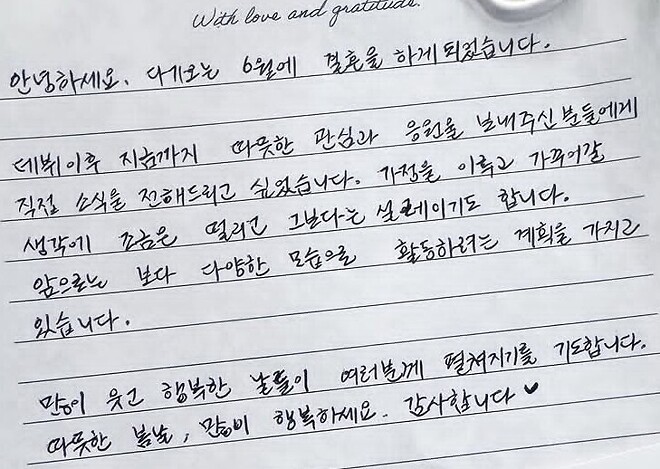 With love and gratitude.
안녕하세요. 다가오는 6월에 결혼을 하게 되었습니다.
데뷔이후 지금까지 따뜻한 관심과 응원을 보내주신 분들에게
직접 소식을 전해드리고 싶었습니다. 가정을 이루고 가꾸어갈
생각에 조금은 떨리고 그보다는 설레이기도 합니다.
앞으로는 보다 다양한 모습으로 활동하려는 계획을 가지고
있습니다.
많이 웃고 행복한 날들이 여러분께 펼쳐지기를 기도합니다.
따뜻한 봄날, 많이 행복하세요. 감사합니다 ♥